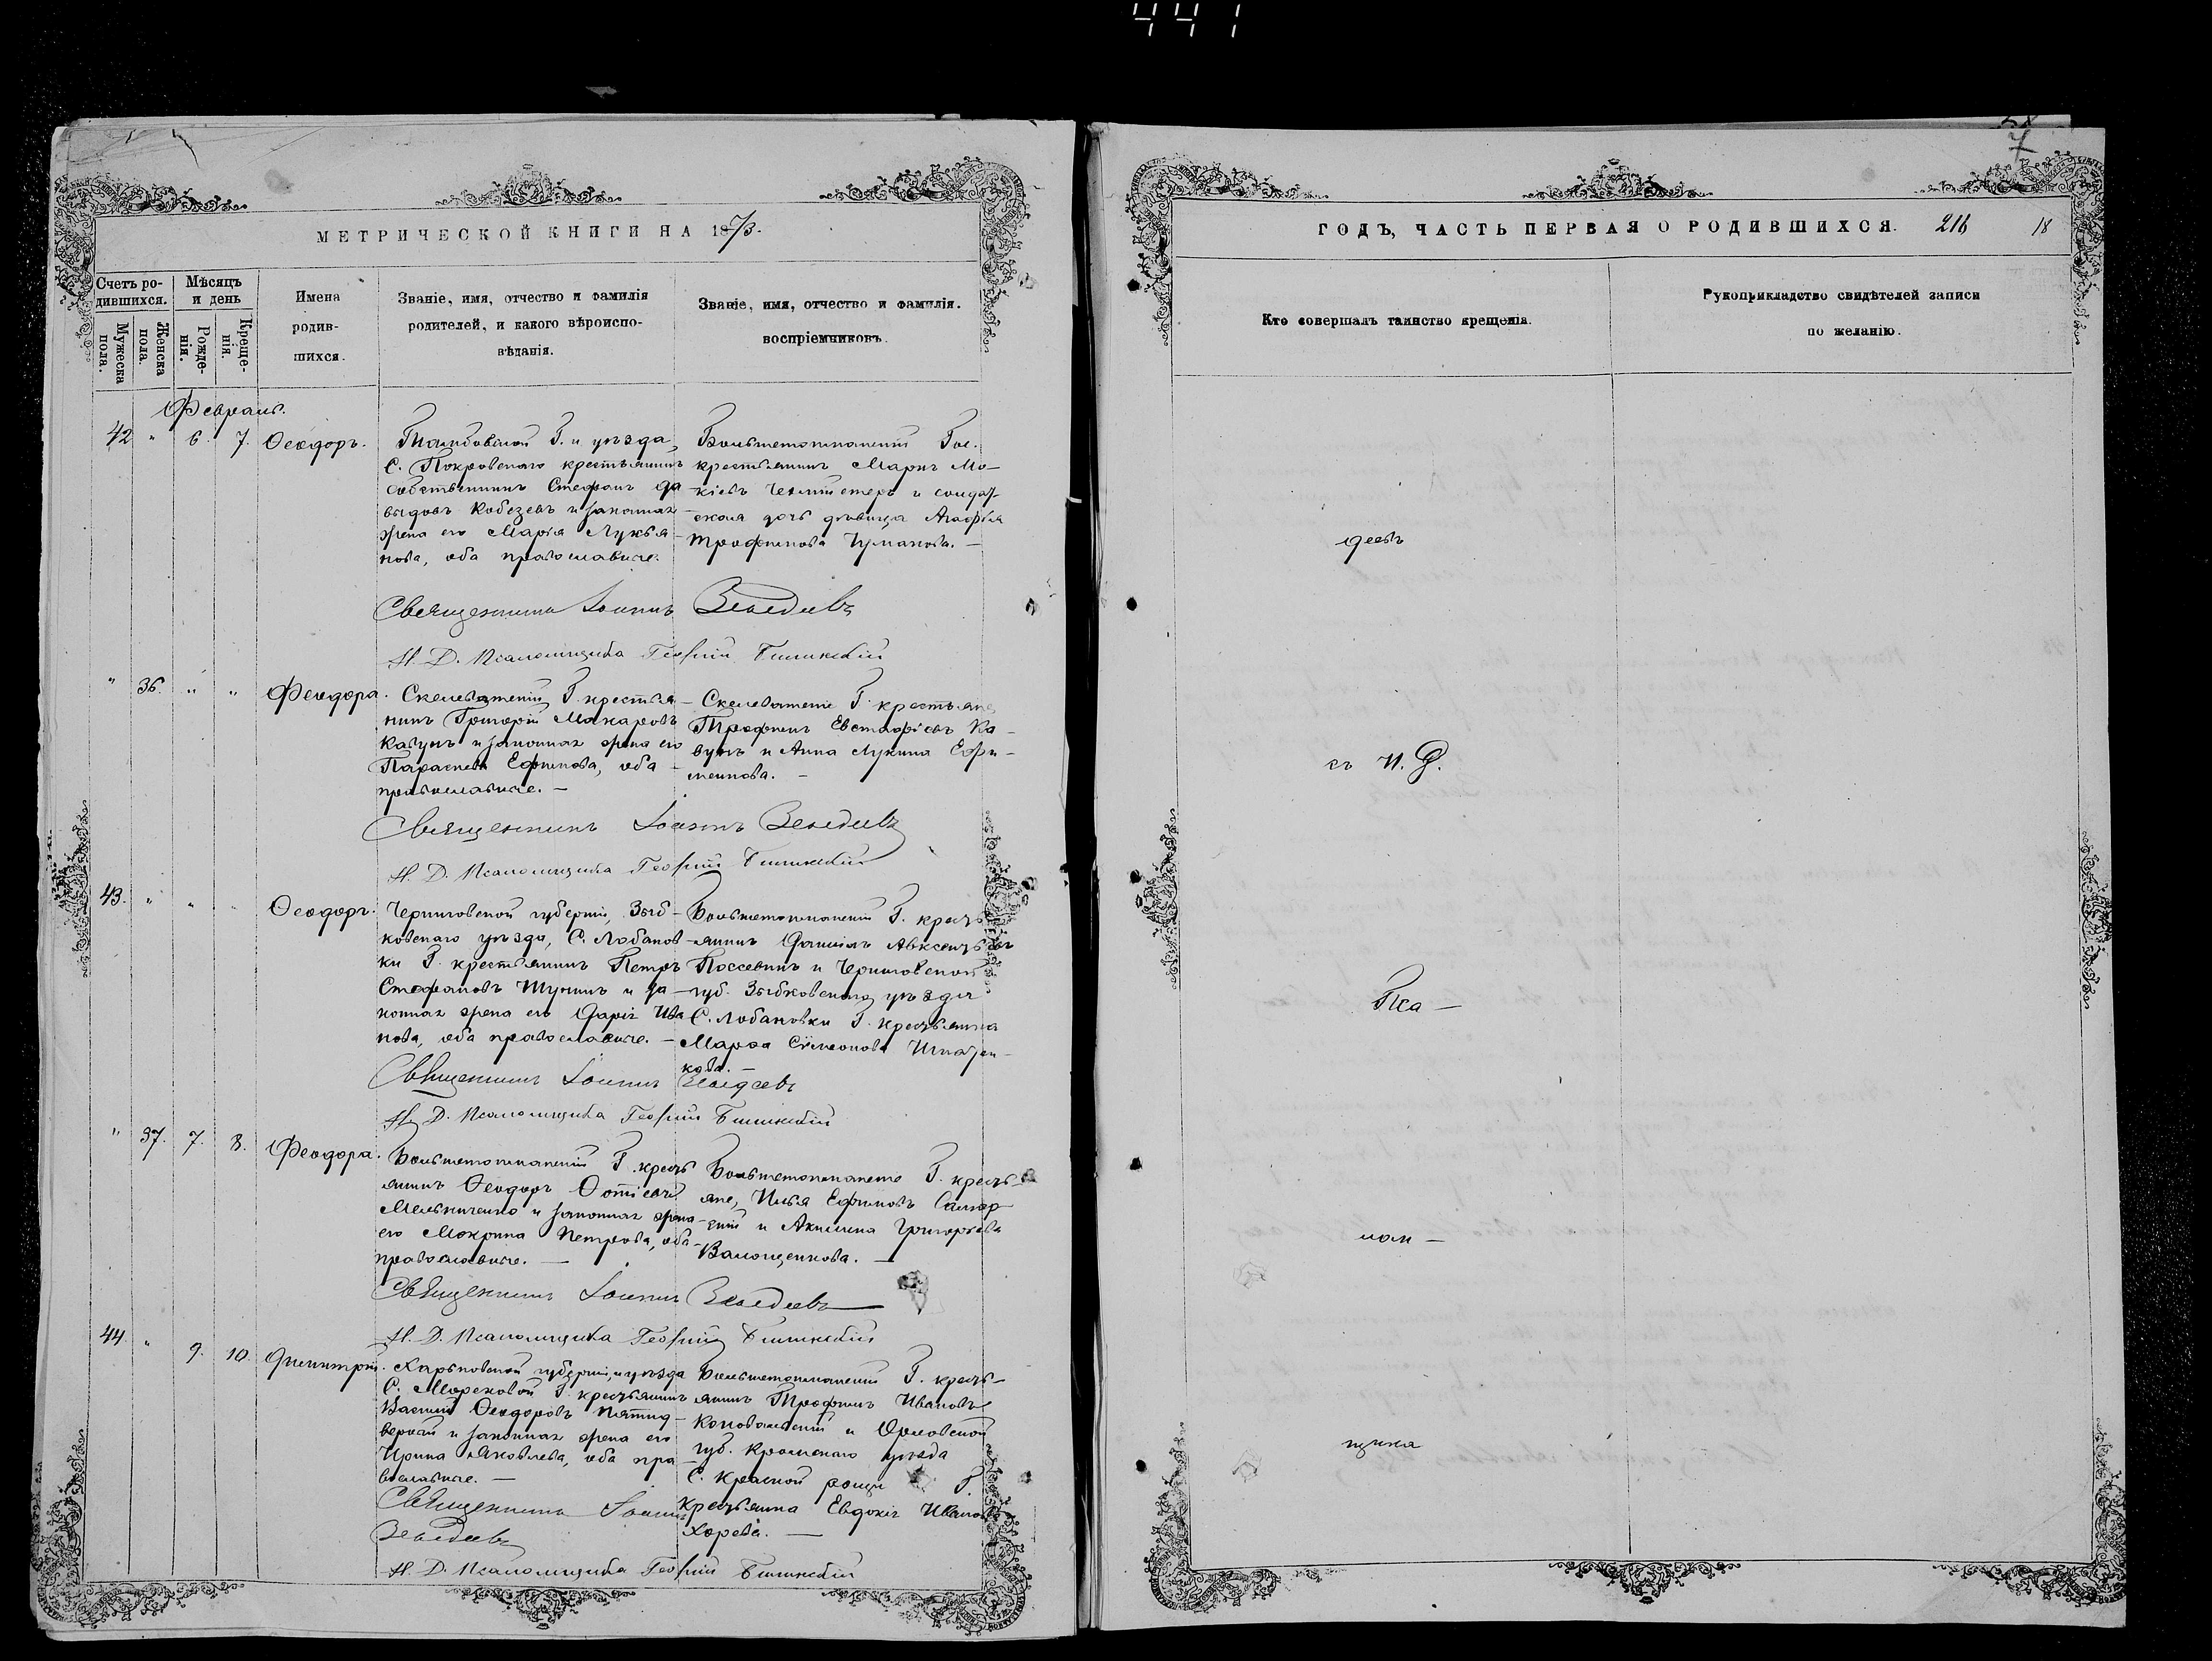 441
7
МЕТРИЧЕСКОЙ КНИГИ НА 1873.
Счетъ ро-
дившихся.
Мужеска пола.
Женска пола.
Мѣсяцъ
и день
Рожде-
нія.
Креще-
нія.
Имена
родив-
шихся.
Званіе, имя, отчество и фамилія
родителей, и какого вѣроиспо-
вѣданія.
Званіе, имя, отчество и фамилія.
воспріемниковъ.
Февраль.
42 " 6. 7. Ѳеодоръ.
Тамбовской Г. и уѣзда,
С. Покровскаго крестьянинъ
собственникъ Стефанъ Да
выдовъ Кобезевъ и законная
жена его Марія Лукья-
нова, оба православные.
Большетокмакскій Гос.
крестьянинъ Маркъ Мо-
кіевъ и солдат-
ская дочь дѣвица Агафія
Трофимова
Священникъ Іоаннъ
И. Д. Псаломщика Георгій
" 36. " " Феодора.
Скелеватскій Г. крестья-
нинъ Григорій Макаровъ
Кавунъ и законная жена его
Параскева Ефимова, оба
православные. —
Скелеватскіе Г. крестьяне
Трофимъ Евстафіевъ Ка-
вунъ и Анна Лукина Ефи-
менкова. —
Священникъ Іоаннъ
И. Д. Псаломщика Георгій
43. " " " Ѳеодоръ.
Черниговской губерніи, Зыб-
ковскаго уѣзда, С. Лобанов-
ки Г. крестьянинъ Петръ
Стефановъ Шунинъ и за-
конная жена его Дарія Ива
нова, оба православные. —
Большетокмакскій Г. кресть-
янинъ Даніилъ Авксентьевъ
и Черниговской
губ. Зыбковскаго уѣзда
С. Лобановки Г. крестьянка
Марѳа Сѵмеонова
кова. —
Священникъ Іоаннъ
И. Д. Псаломщика Георгій
" 37. 7. 8. Феодора.
Большетокмакскій Г. кресть
янинъ Ѳеодоръ Ѳотіевъ
Мельниченко и законная жена
его Мокрина Петрова, оба
православные. —
Большетокмакскіе Г. кресть-
яне, Илья Ефимовъ Самар-
скій и Акилина Григорьева
Валющенкова. —
Священникъ Іоаннъ
И. Д. Псаломщика Георгій
44. " 9. 10. Димитрій.
Харьковской губерніи, и уѣзда
С. Мореховой Г. крестьянинъ
Василій Ѳеодоровъ Пятид-
верный и законная жена его
Ирина Яковлева, оба пра-
вославные. —
Большетокмакскій Г. кресть-
янинъ Трофимъ Ивановъ
Коновальскій и Орловской
губ. Кромскаго уѣзда
С. Красной рощи Г.
крестьянка Евдокія Иванова
Хорева. —
Священникъ Іоаннъ
И. Д. Псаломщика Георгій
ГОДЪ, ЧАСТЬ ПЕРВАЯ О РОДИВШИХСЯ. 216 18
Кто совершалъ таинство крещенія.
Рукоприкладство свидѣтелей записи
по желанію.
съ И. Д.
Пса —
лом —
щика